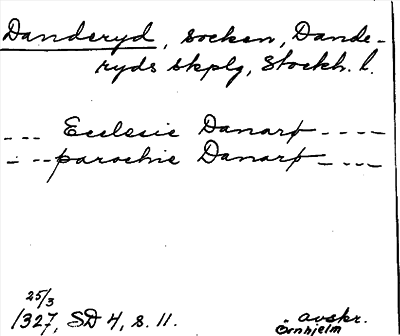 Danderyd, socken, Dande-
ryds skplg, Stockh. l.
--- Ecclesie Danarþ ----
- -- parochie Danarþ - ---
25/3
1327, SD 4, s. 11.
avskr.
Örnhjelm